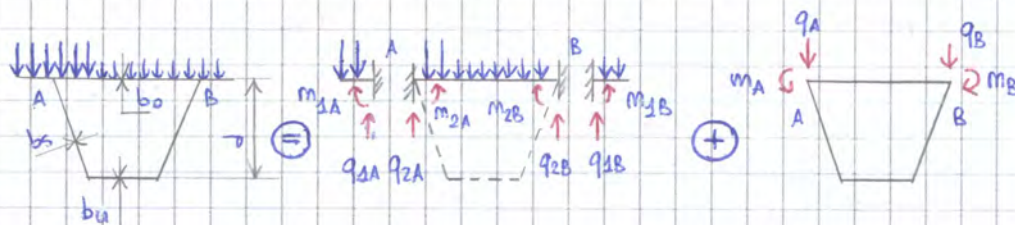 A B b₀ bₛ bᵤ
=
A B m₁A m₂A m₂B m₁B q₁A q₂A q₂B q₁B
+
qA qB mA mB A B